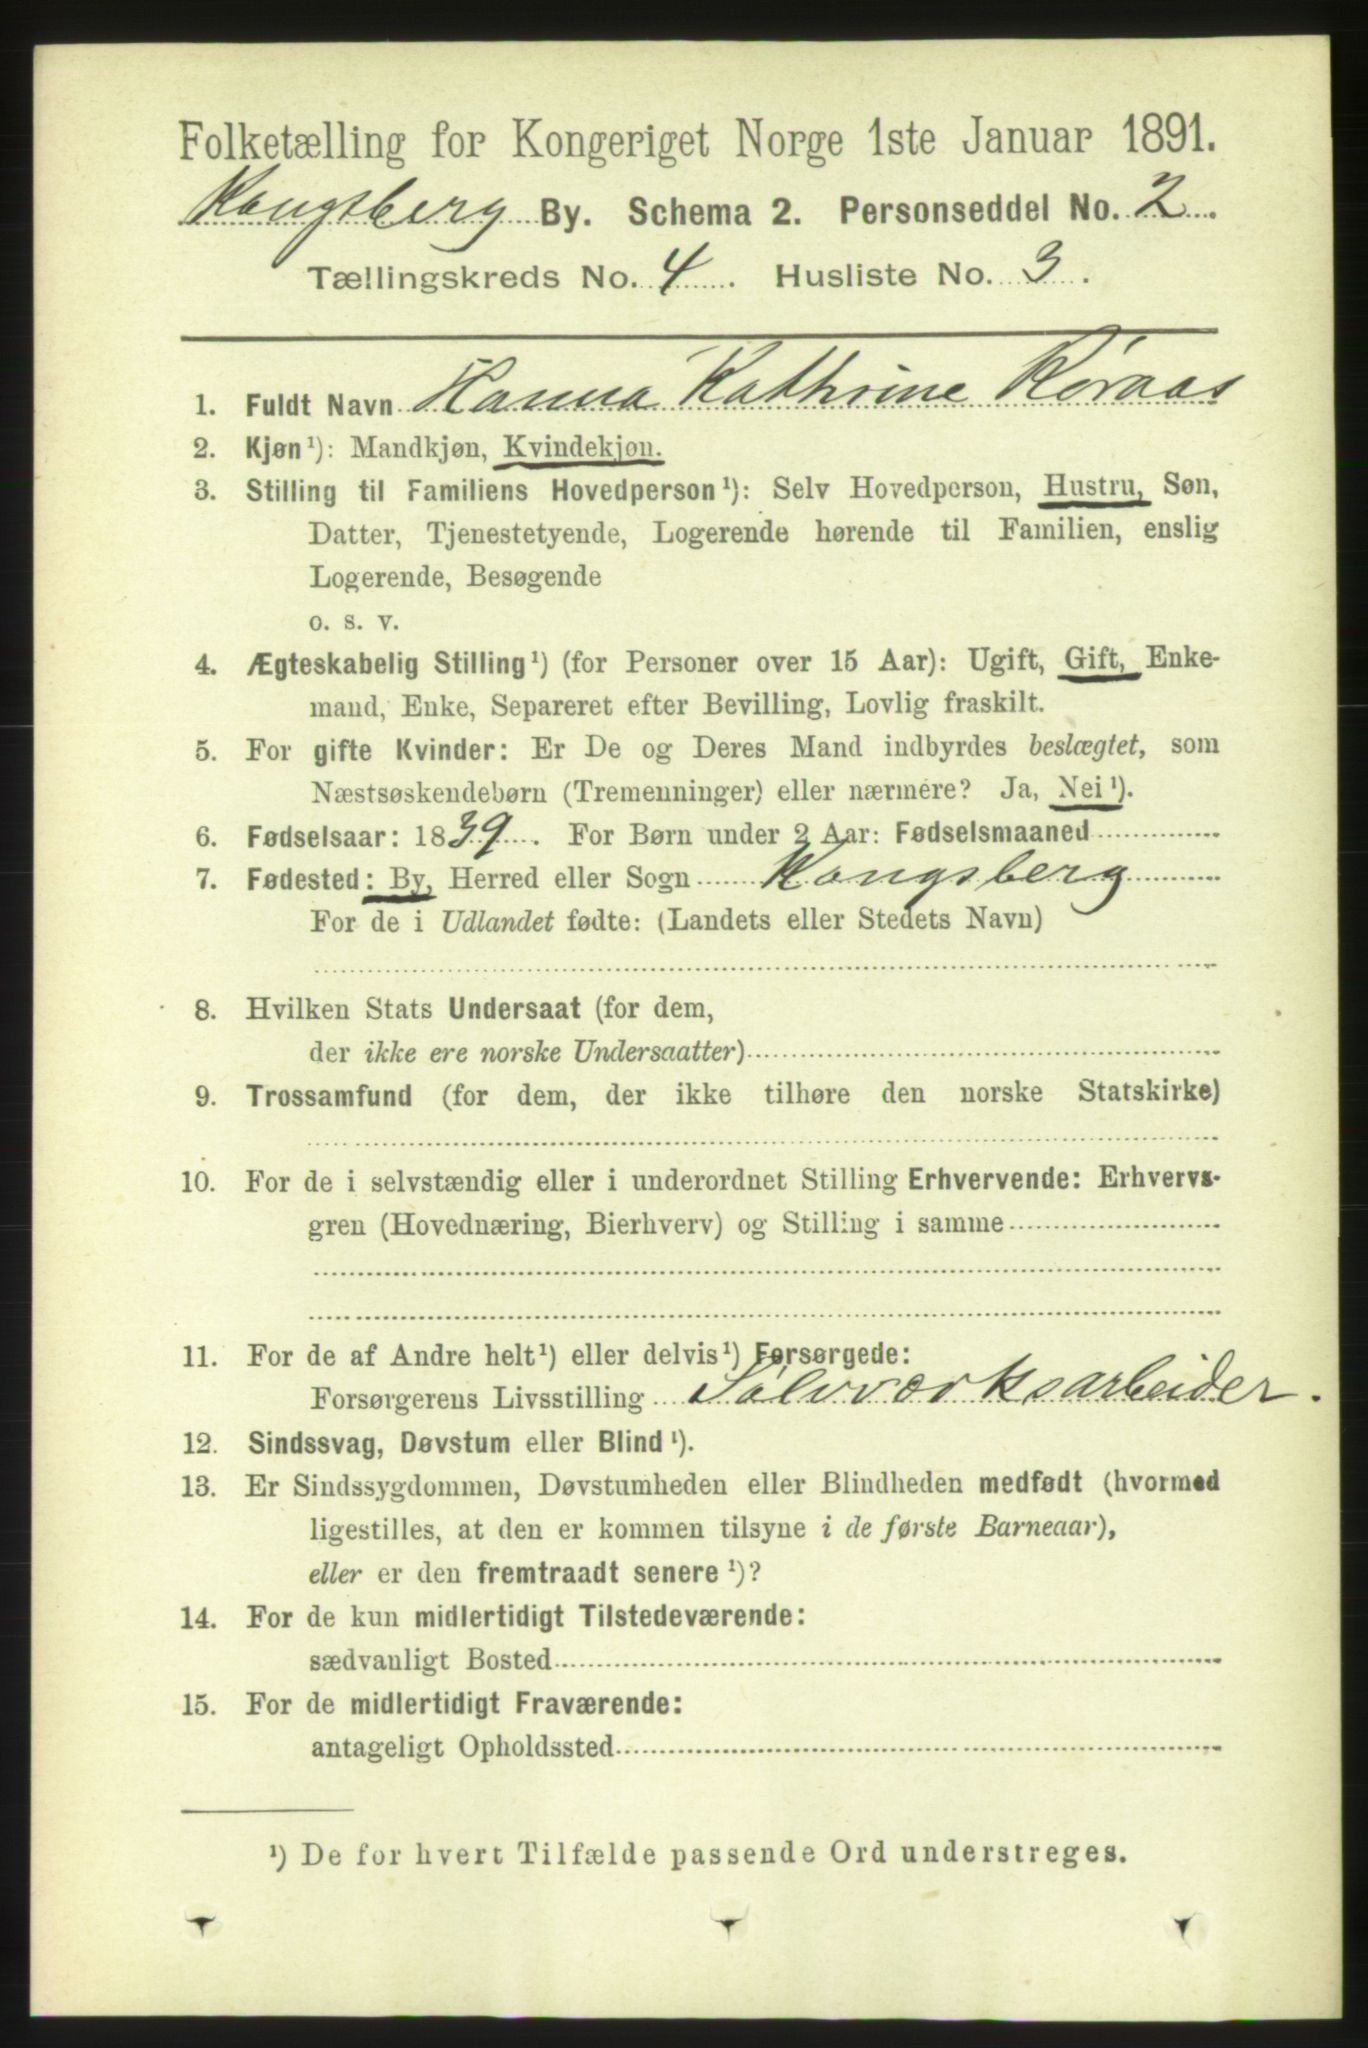 Folketælling for Kongeriget Norge 1ste Januar 1891.
Kongsberg By. Schema 2. Personseddel No. 2.
Tællingskreds No. 4. Husliste No. 3.
1. Fuldt Navn Hanna Kathrine Køraas
2. Kjøn¹): Mandkjøn, Kvindekjøn.
3. Stilling til Familiens Hovedperson¹): Selv Hovedperson, Hustru, Søn,
Datter, Tjenestetyende, Logerende hørende til Familien, enslig
Logerende, Besøgende
o. s. v.
4. Ægteskabelig Stilling¹) (for Personer over 15 Aar): Ugift, Gift, Enke-
mand, Enke, Separeret efter Bevilling, Lovlig fraskilt.
5. For gifte Kvinder: Er De og Deres Mand indbyrdes beslægtet, som
Næstsøskendebørn (Tremenninger) eller nærmere? Ja, Nei¹).
6. Fødselsaar: 1839. For Børn under 2 Aar: Fødselsmaaned
7. Fødested: By, Herred eller Sogn Kongsberg
For de i Udlandet fødte: (Landets eller Stedets Navn)
8. Hvilken Stats Undersaat (for dem,
der ikke ere norske Undersaatter)
9. Trossamfund (for dem, der ikke tilhøre den norske Statskirke)
10. For de i selvstændig eller i underordnet Stilling Erhvervende: Erhvervs-
gren (Hovednæring, Bierhverv) og Stilling i samme
11. For de af Andre helt¹) eller delvis¹) Forsørgede:
Forsørgerens Livsstilling Sølvværksarbeider.
12. Sindssvag, Døvstum eller Blind¹).
13. Er Sindssygdommen, Døvstumheden eller Blindheden medfødt (hvormed
ligestilles, at den er kommen tilsyne i de første Barneaar),
eller er den fremtraadt senere¹)?
14. For de kun midlertidigt Tilstedeværende:
sædvanligt Bosted
15. For de midlertidigt Fraværende:
antageligt Opholdssted
¹) De for hvert Tilfælde passende Ord understreges.